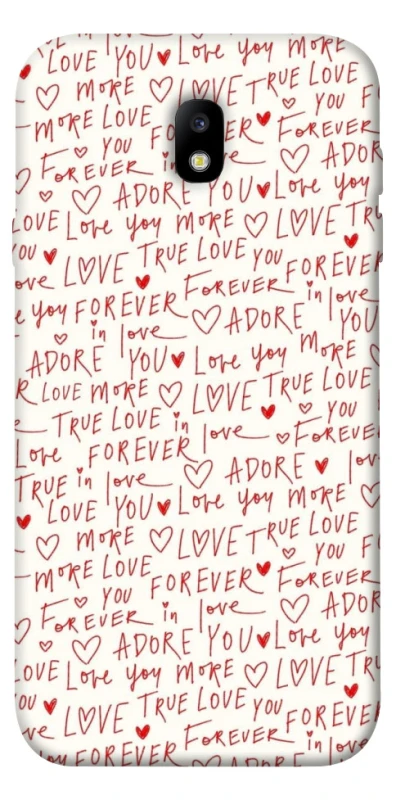 in love
LOVE YOU Love you MORE
MORE LOVE TRUE LOVE
MORE LOVE YOU
YOU FOREVER FOREVER
FOREVER in love ADOR
ADORE YOU Love you
LOVE Love you MORE LOVE TRU
YOU TRUE LOVE YOU
ove LOVE FOREVER FOREVER
e you FOREVER in love
in love ADORE YOU
ADORE YOU Love you MORE
R LOVE MORE LOVE TRUE LOVE
TRUE LOVE in love YOU
Love FOREVER FOREVE
TRUE in love ADORE lov
LOVE YOU Love you MORE
MORE LOVE TRUE LOVE
MORE LOVE YOU F
YOU FOREVER FOREVER
FOREVER in love ADOR
ADORE YOU Love you
LOVE Love you MORE LOVE TRU
YOU TRUE LOVE YOU
ove LOVE FOREVER FOREVER
you FOREVER in love
in love ADORE